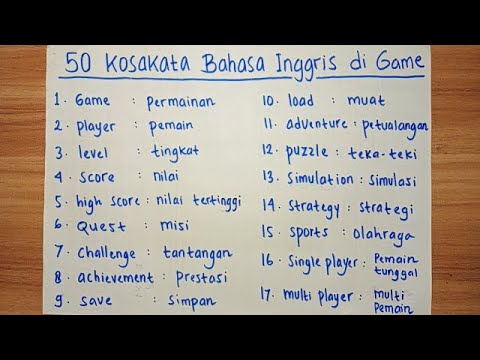 50 Kosakata Bahasa Inggris di Game
1. Game : permainan
2. player : pemain
3. level : tingkat
4. score : nilai
5. high score : nilai tertinggi
6. Quest : misi
7. challenge : tantangan
8. achievement : Prestasi
9. save : simpan
10. load : muat
11. adventure : petualangan
12. puzzle : teka-teki
13. simulation : simulasi
14. strategy : strategi
15. sports : olahraga
16. single player : Pemain
tunggal
17. multi player : multi
Pemain